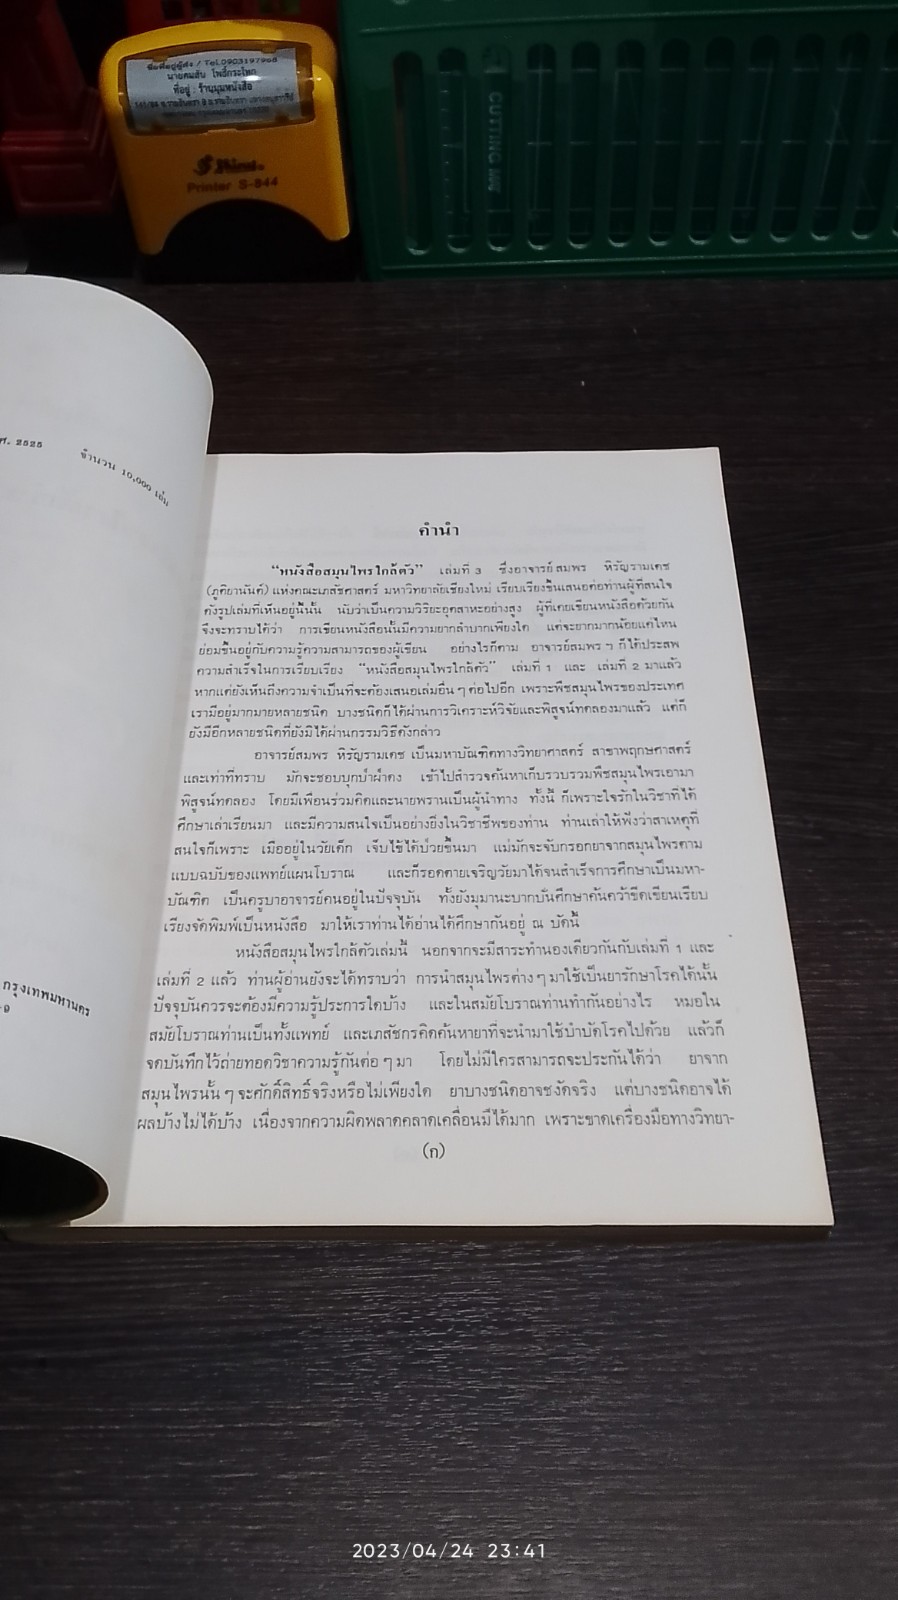 ชื่อที่อยู่ผู้ส่ง / Tel.0903197968
นายคมสัน โพธิ์กระโทก
ที่อยู่ : ร้านมุมหนังสือ
Shiny
Printer S-844
CUTTING MAT
ศ. 2525 จำนวน 10,000 เล่ม
กรุงเทพมหานคร
-9
คำนำ
“หนังสือสมุนไพรใกล้ตัว” เล่มที่ 3 ซึ่งอาจารย์สมพร หิรัญรามเดช
(ภูติยานันต์) แห่งคณะเภสัชศาสตร์ มหาวิทยาลัยเชียงใหม่ เรียบเรียงขึ้นเสนอต่อท่านผู้ที่สนใจ
ดังรูปเล่มที่เห็นอยู่นี้นั้น นับว่าเป็นความวิริยะอุตสาหะอย่างสูง ผู้ที่เคยเขียนหนังสือด้วยกัน
จึงจะทราบได้ว่า การเขียนหนังสือนั้นมีความยากลำบากเพียงใด แต่จะยากมากน้อยแค่ไหน
ย่อมขึ้นอยู่กับความรู้ความสามารถของผู้เขียน อย่างไรก็ตาม อาจารย์สมพร ฯ ก็ได้ประสพ
ความสำเร็จในการเรียบเรียง “หนังสือสมุนไพรใกล้ตัว” เล่มที่ 1 และ เล่มที่ 2 มาแล้ว
หากแต่ยังเห็นถึงความจำเป็นที่จะต้องเสนอเล่มอื่น ๆ ต่อไปอีก เพราะพืชสมุนไพรของประเทศ
เรามีอยู่มากมายหลายชนิด บางชนิดก็ได้ผ่านการวิเคราะห์วิจัยและพิสูจน์ทดลองมาแล้ว แต่ก็
ยังมีอีกหลายชนิดที่ยังมิได้ผ่านกรรมวิธีดังกล่าว
อาจารย์สมพร หิรัญรามเดช เป็นมหาบัณฑิตทางวิทยาศาสตร์ สาขาพฤกษศาสตร์
และเท่าที่ทราบ มักจะชอบบุกป่าฝ่าดง เข้าไปสำรวจค้นหาเก็บรวบรวมพืชสมุนไพรเอามา
พิสูจน์ทดลอง โดยมีเพื่อนร่วมคิดและนายพรานเป็นผู้นำทาง ทั้งนี้ ก็เพราะใจรักในวิชาที่ได้
ศึกษาเล่าเรียนมา และมีความสนใจเป็นอย่างยิ่งในวิชาชีพของท่าน ท่านเล่าให้ฟังว่าสาเหตุที่
สนใจก็เพราะ เมื่ออยู่ในวัยเด็ก เจ็บไข้ได้ป่วยขึ้นมา แม่มักจะจับกรอกยาจากสมุนไพรตาม
แบบฉบับของแพทย์แผนโบราณ และก็รอดตายเจริญวัยมาได้จนสำเร็จการศึกษาเป็นมหา-
บัณฑิต เป็นครูบาอาจารย์คนอยู่ในปัจจุบัน ทั้งยังมุมานะบากบั่นศึกษาค้นคว้าขีดเขียนเรียบ
เรียงจัดพิมพ์เป็นหนังสือ มาให้เราท่านได้อ่านได้ศึกษากันอยู่ ณ บัดนี้
หนังสือสมุนไพรใกล้ตัวเล่มนี้ นอกจากจะมีสาระทำนองเดียวกันกับเล่มที่ 1 และ
เล่มที่ 2 แล้ว ท่านผู้อ่านยังจะได้ทราบว่า การนำสมุนไพรต่าง ๆ มาใช้เป็นยารักษาโรคได้นั้น
ปัจจุบันควรจะต้องมีความรู้ประการใดบ้าง และในสมัยโบราณท่านทำกันอย่างไร หมอใน
สมัยโบราณท่านเป็นทั้งแพทย์ และเภสัชกรคิดค้นหายาที่จะนำมาใช้บำบัดโรคไปด้วย แล้วก็
จดบันทึกไว้ถ่ายทอดวิชาความรู้กันต่อ ๆ มา โดยไม่มีใครสามารถจะประกันได้ว่า ยาจาก
สมุนไพรนั้น ๆ จะศักดิ์สิทธิ์จริงหรือไม่เพียงใด ยาบางชนิดอาจชงัดจริง แต่บางชนิดอาจได้
ผลบ้างไม่ได้บ้าง เนื่องจากความผิดพลาดคลาดเคลื่อนมีได้มาก เพราะขาดเครื่องมือทางวิทยา-
(ก)
2023/04/24 23:41